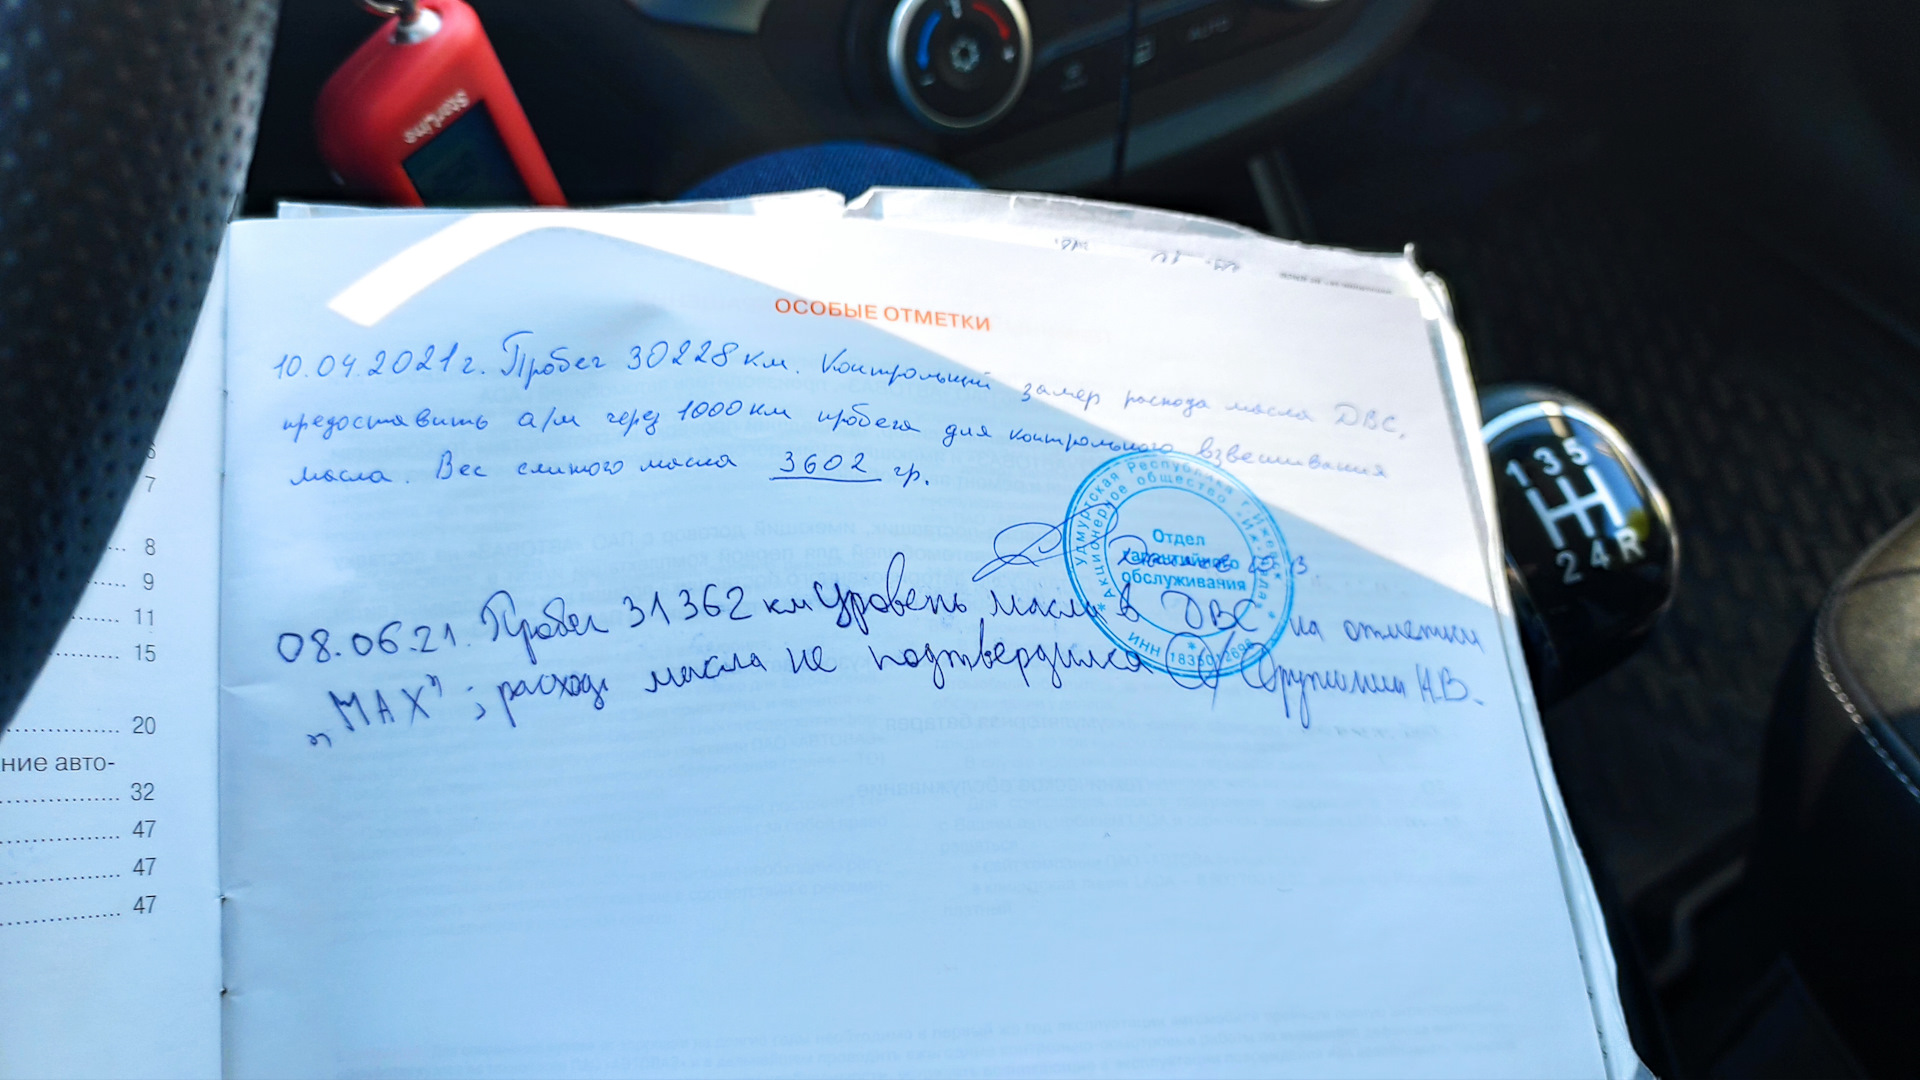 Starline
AUTO
ОСОБЫЕ ОТМЕТКИ
10.04.2021г. Пробег 30228 км. Контрольный замер расхода масла ДВС,
предоставить а/м через 1000 км пробега для контрольного взвешивания
масла. Вес слитого масла 3602 гр.
Удмуртская Республика г. Ижевск
Акционерное общество
Отдел
гарантийного
обслуживания
ИНН
08.06.21. Пробег 31362 км Уровень масла в ДВС на отметки
"MAX"; расход масла не подтвердился Н.В.
7
8
9
11
15
20
ние авто-
32
47
47
47
1 3 5
2 4 R